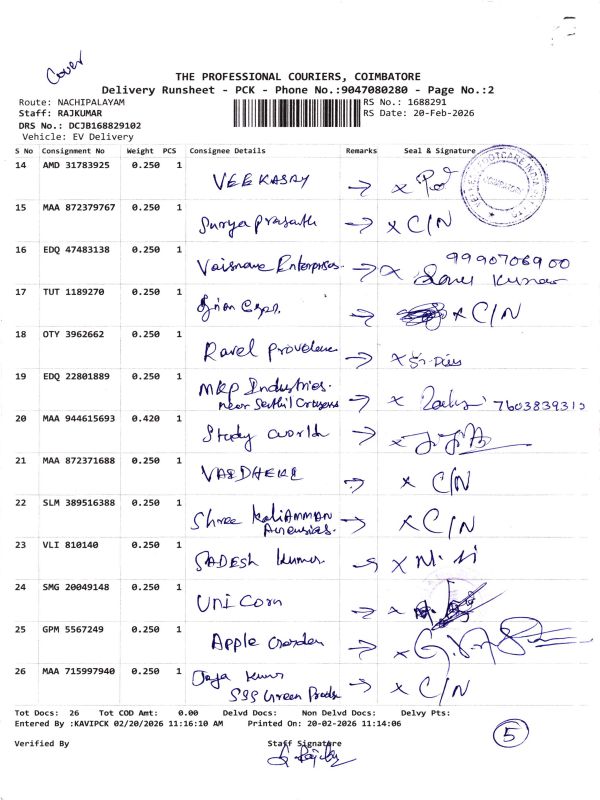 Cover
THE PROFESSIONAL COURIERS, COIMBATORE
Delivery Runsheet - PCK - Phone No.:9047080280 - Page No.:2
Route: NACHIPALAYAM RS No.: 1688291
Staff: RAJKUMAR RS Date: 20-Feb-2026
DRS No.: DCJB168829102
Vehicle: EV Delivery
S No Consignment No Weight PCS Consignee Details Remarks Seal & Signature
14 AMD 31783925 0.250 1 VEEKASAY → x
15 MAA 872379767 0.250 1 Surya prasath → x C/N
16 EDQ 47483138 0.250 1 Vaisnave Enterprises. → x 9990706900
Kumar
17 TUT 1189270 0.250 1 → x C/N
18 OTY 3962662 0.250 1 Ravel → x
19 EDQ 22801889 0.250 1 MKP Industries.
near → x 7603839310
20 MAA 944615693 0.420 1 Study world → x
21 MAA 872371688 0.250 1 → x C/N
22 SLM 389516388 0.250 1 Shree KaliAMMAN → x C/N
23 VLI 810140 0.250 1 SADESH Kumar → x
24 SMG 20049148 0.250 1 UNI Corn → x
25 GPM 5567249 0.250 1 Apple → x
26 MAA 715997940 0.250 1 Jaya Kumar
SSS Green → x C/N
Tot Docs: 26 Tot COD Amt: 0.00 Delvd Docs: Non Delvd Docs: Delvy Pts:
Entered By :KAVIPCK 02/20/2026 11:16:10 AM Printed On: 20-02-2026 11:14:06
5
Verified By Staff Signature